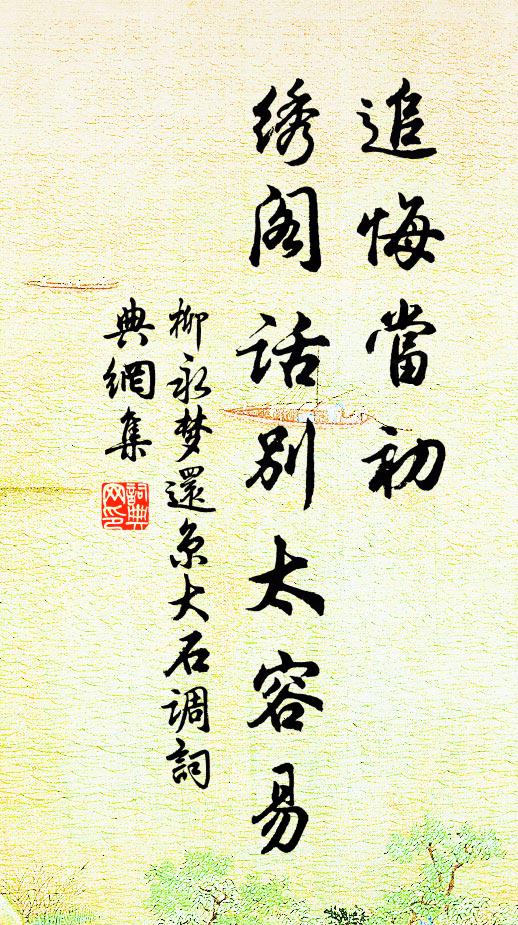 追悔當初
绣阁话别太容易
柳永梦還京大石调詞
典網集
詞典
网印